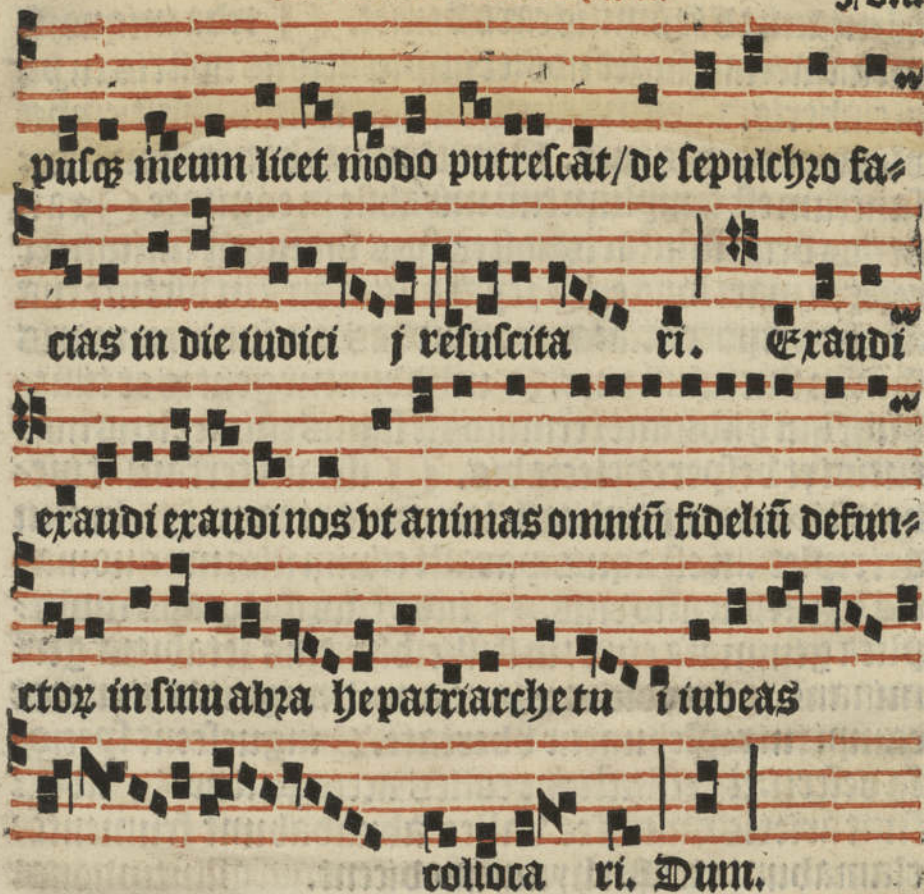 puſqꝫ meum licet modo putreſcat/de ſepulchꝛo fa⸗
cias in die iudici j reſuſcita ri. Exaudi
exaudi exaudi nos vt animas omniū fideliū defun⸗
ctoꝝ in ſinu abꝛa he patriarche tu i iubeas
colloca ri. Dum.